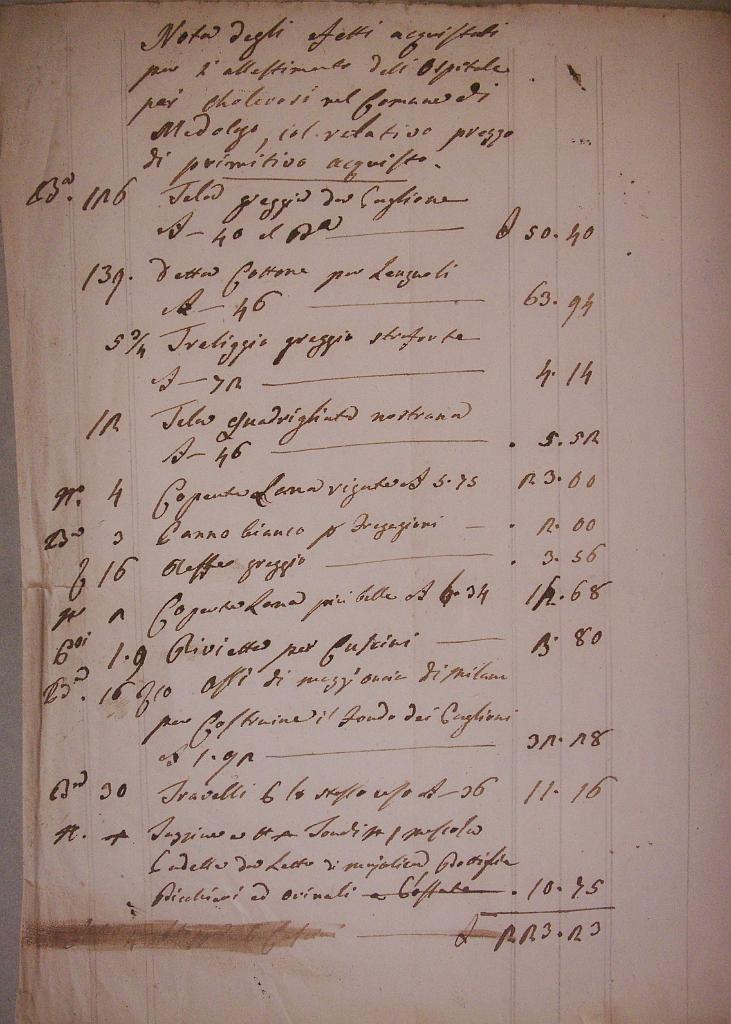 Nota degli effetti acquistati
per l'allestimento dell'Ospitale
pei cholerosi nel Comune di
Medolago, col relativo prezzo
di primitivo acquisto.
Bª. 126 Tela greggia da Paglione
A - 40 al Bª £ 50.40
139. detta Cottone per Lenzuoli
A - 46 63.94
5 3/4 Treliggio greggio
A - 72 4.14
12 Tela quadrigliata nostrana
A - 46 5.52
Nº. 4 Coperte Lana rigate A 5.75 23.00
Bª 3 Panno bianco pr Fregagioni 2.00
16 Reffe greggio 3.56
Nº 2 Coperte Lana più belle A 6.34 12.68
1.9 per Cuscini 80
Bª. 16 Assi di di Milano
per Costruire il Fondo dei Paglioni
A 1.92 32.28
30 Travelli stesso uso A - 36 11.16
N.
da Letto di majolica Bottiglie
Bicchieri ed orinali 10.75
£ 223.23